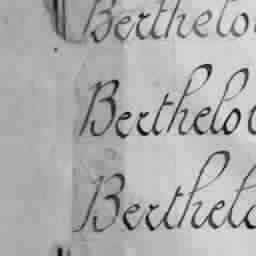 Berthelo
Berthelo
Berthelo